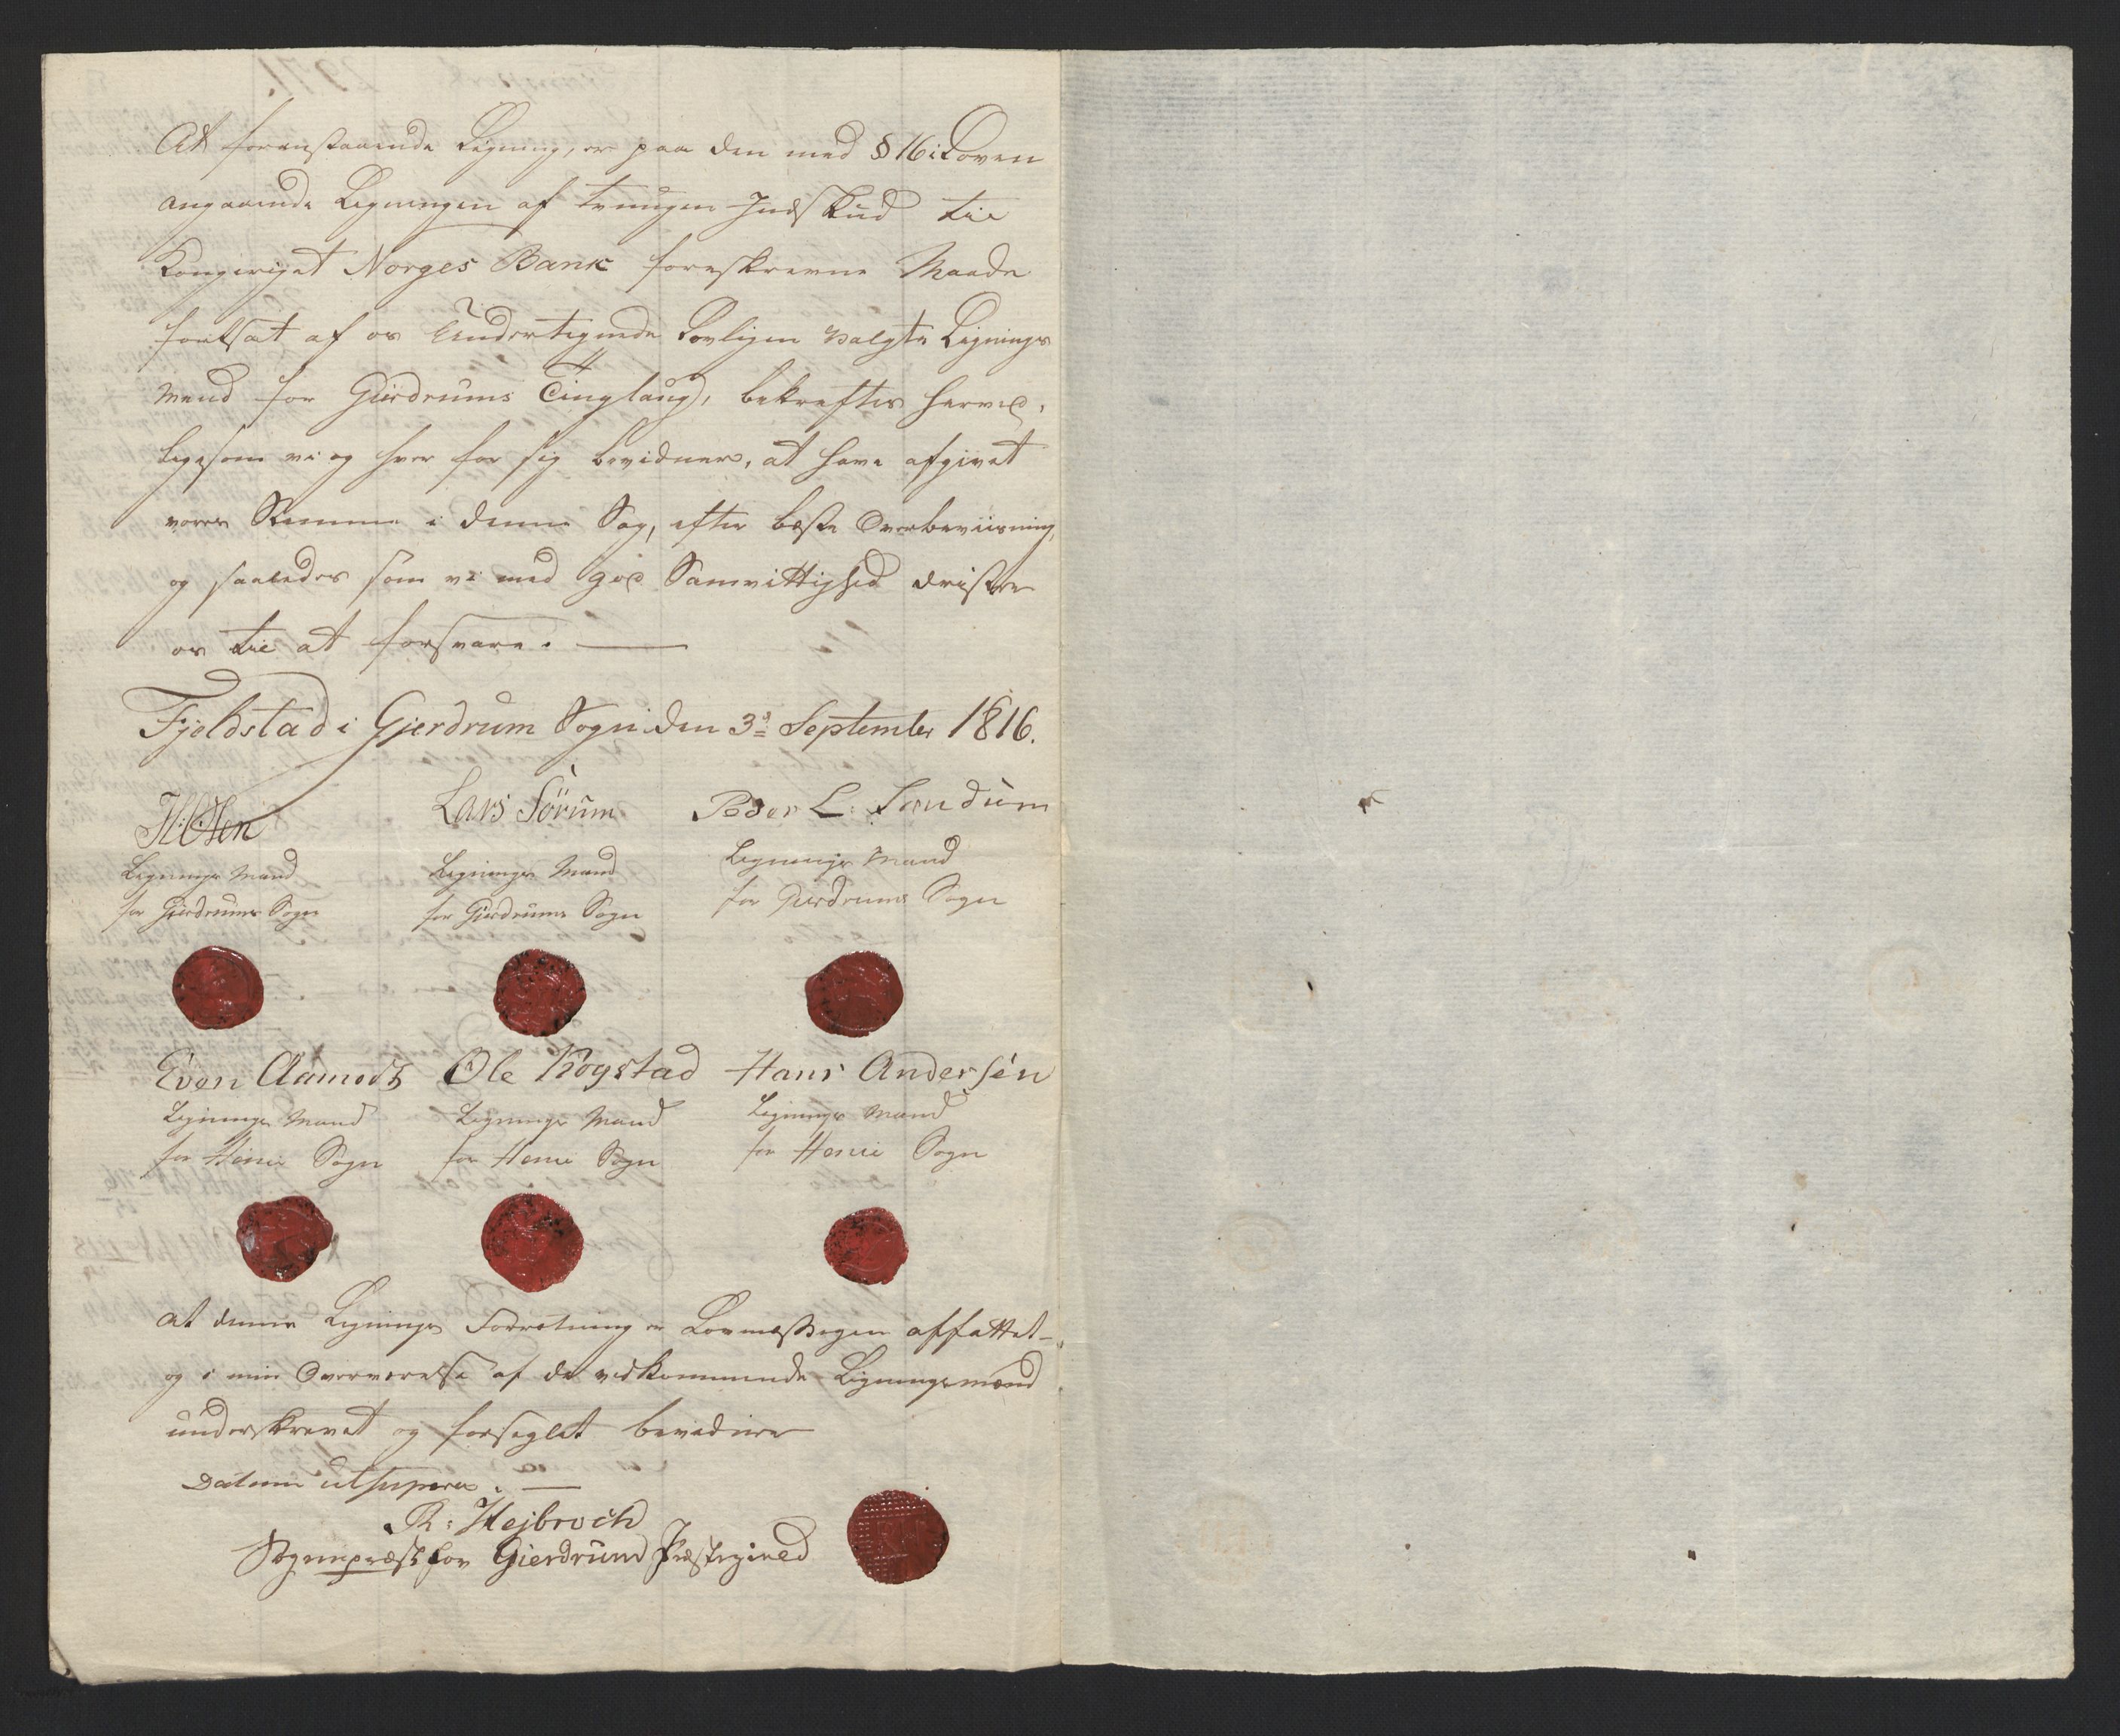 At foranstaaende Ligning, er paa den med § 16 i Loven
angaaende Ligningen af tvungen Indskud til
Kongeriget Norges Bank foreskrevne Maade
fortsat af os Undertegnede Lovligen valgte Lignings
Mænd for Gierdrums Tinglaug, bekræftes herved,
ligesom vi og hver for sig bevidner, at have afgivet
vores Stemme i denne Sag, efter beste Overbeviisning,
og saaledes som vi med god Samvittighed drister
os til at forsvare. —
Fjeldstad i Gjerdrum Sogn den 3d September 1816.
Lars Sörum Peder L: Sandum
Lignings Mand Lignings Mand Lignings Mand
for Gierdrums Sogn for Gierdrums Sogn for Gierdrums Sogn
Even Aamodt Ole Kogstad Hans Andersén
Lignings Mand Lignings Mand Lignings Mand
for Henie Sogn for Henie Sogn for Henie Sogn
At denne Lignings Forretning er Lovmæssigen affattet
og i min Overværelse af de vedkommende Ligningsmænd
underskrevet og forseglet bevidner
Datum ut supra. —
R: Hejbroch
Sognepræst for Gierdrum Præstegield